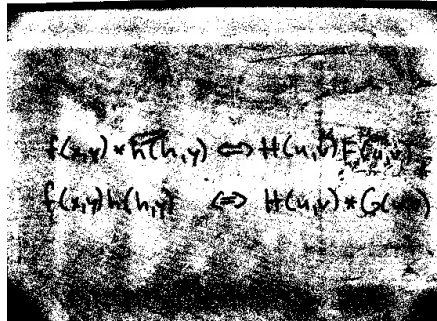 f(x,y) * h(h,y) ⇔ H(u,v) F(u,v)
f(x,y) h(h,y) ⇔ H(u,v) * G(u,v)